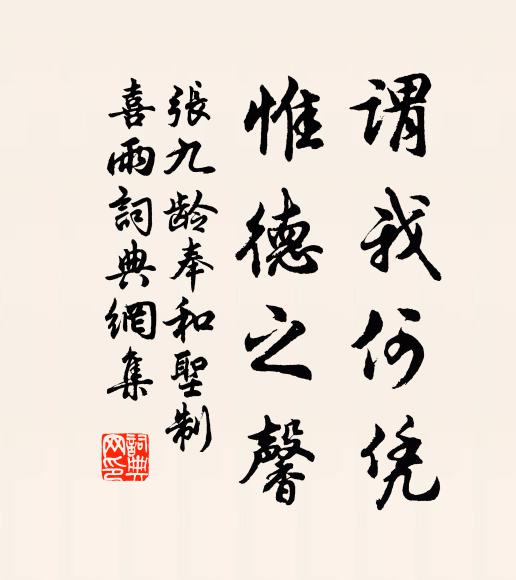 謂我何凭
惟德之馨
張九龄奉和聖制
喜雨詞典網集
詞典网印